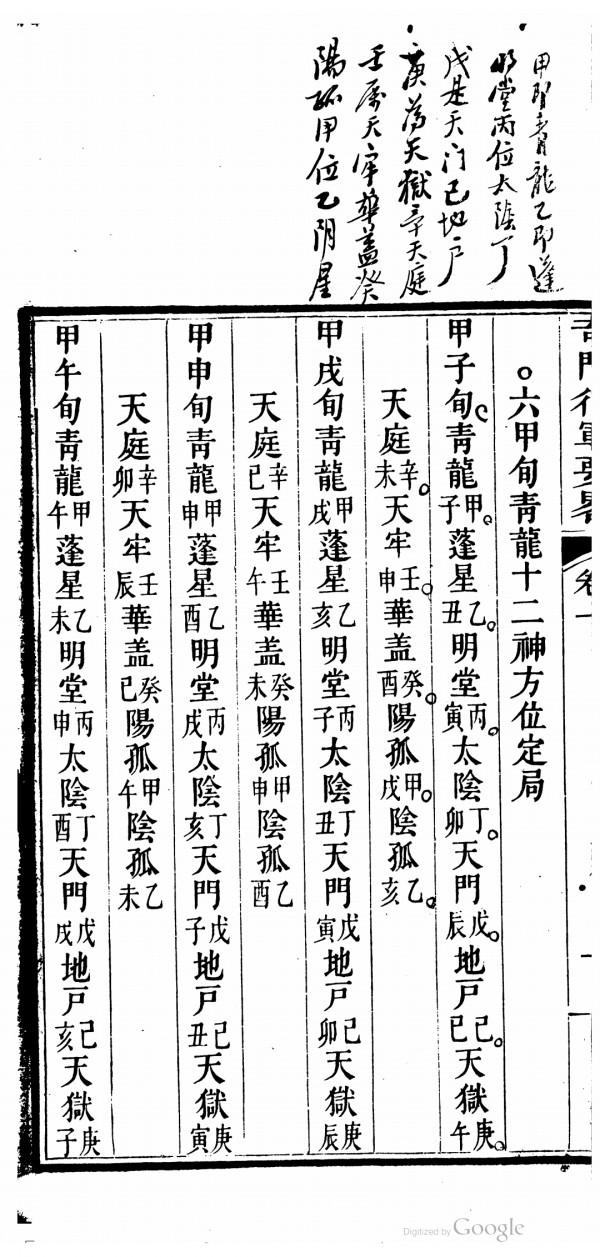 甲青龍乙即蓬
明堂丙位太陰丁
戊是天门己地户
庚為天獄辛天庭
壬天牢華盖癸
陽孤甲位乙阴星
奇門行軍要畧 卷一
六甲旬青龍十二神方位定局
甲子旬青龍甲子蓬星乙丑明堂丙寅太陰丁卯天門戊辰地戸己巳天獄庚午
天庭辛未天牢壬申華盖癸酉陽孤甲戌陰孤乙亥
甲戌旬青龍甲戌蓬星乙亥明堂丙子太陰丁丑天門戊寅地戸己卯天獄庚辰
天庭辛巳天牢壬午華盖癸未陽孤甲申陰孤乙酉
甲申旬青龍甲申蓬星乙酉明堂丙戌太陰丁亥天門戊子地戸己丑天獄庚寅
天庭辛卯天牢壬辰華盖癸巳陽孤甲午陰孤乙未
甲午旬青龍甲午蓬星乙未明堂丙申太陰丁酉天門戊戌地戸己亥天獄庚子
Digitized by Google